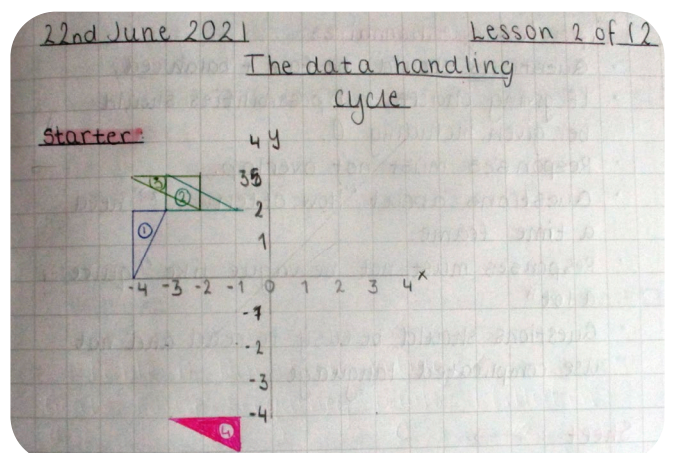 22nd June 2021 Lesson 2 of 12
The data handling
cycle
starter:
4 y
3
③ ②
2
① 1
-4 -3 -2 -1 0 1 2 3 4 x
-1
-2
-3
-4
④